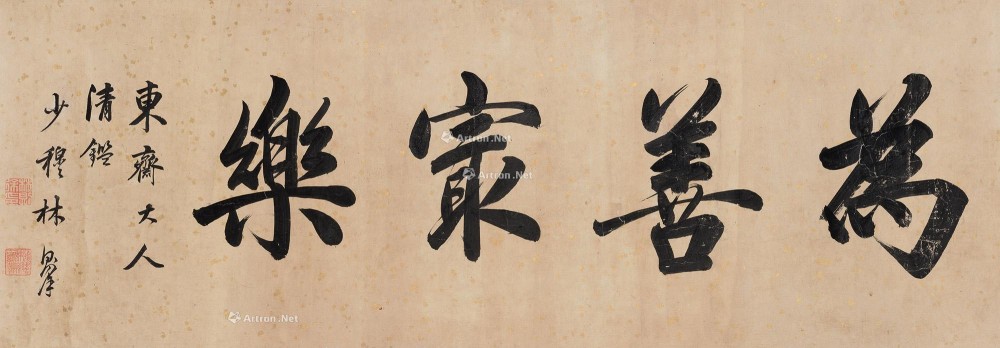 為善寂樂
東齋大人
清鑑
少穆林則徐
Artron.Net
Artron.Net
Artron.Net